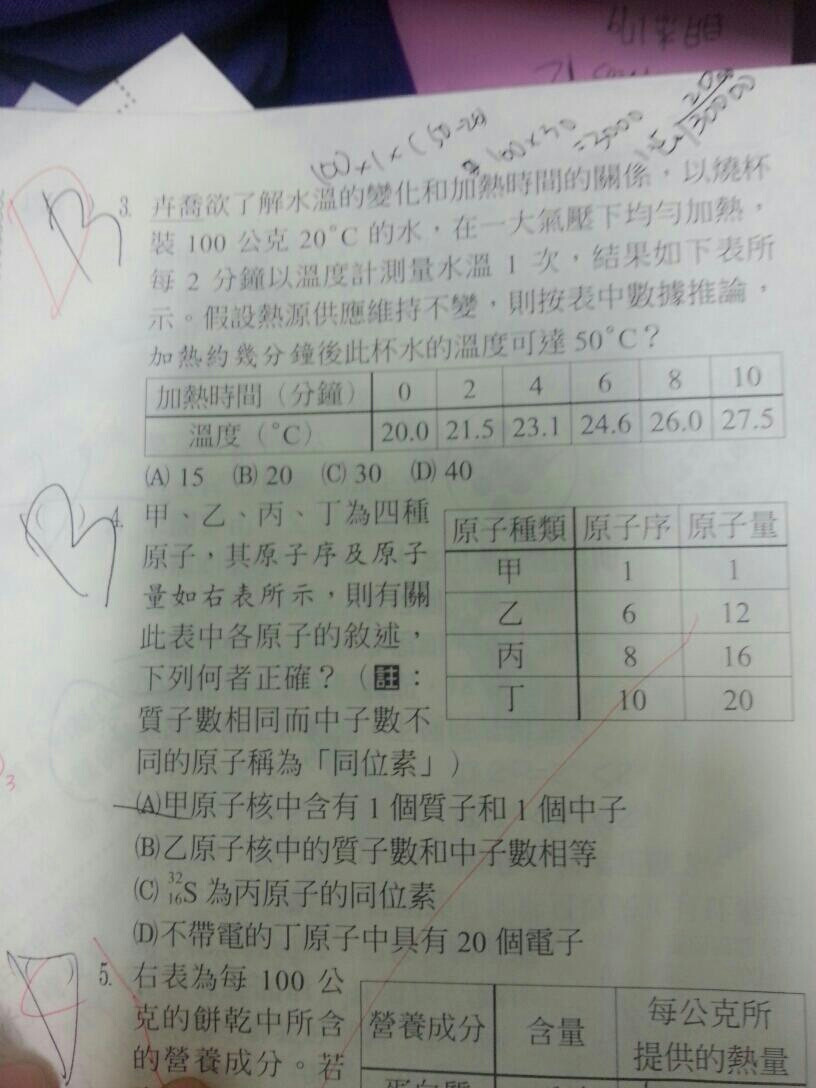 100×1×(50-20)
100×30
=3000
3. 卉喬欲了解水溫的變化和加熱時間的關係，以燒杯
裝 100 公克 20°C 的水，在一大氣壓下均勻加熱，
每 2 分鐘以溫度計測量水溫 1 次，結果如下表所
示。假設熱源供應維持不變，則按表中數據推論，
加熱約幾分鐘後此杯水的溫度可達 50°C？
加熱時間（分鐘） 0 2 4 6 8 10
溫度（°C） 20.0 21.5 23.1 24.6 26.0 27.5
(A) 15 (B) 20 (C) 30 (D) 40
4. 甲、乙、丙、丁為四種
原子，其原子序及原子
量如右表所示，則有關
此表中各原子的敘述，
下列何者正確？（註：
質子數相同而中子數不
同的原子稱為「同位素」）
原子種類 原子序 原子量
甲 1 1
乙 6 12
丙 8 16
丁 10 20
(A)甲原子核中含有 1 個質子和 1 個中子
(B)乙原子核中的質子數和中子數相等
(C) ³²₁₆S 為丙原子的同位素
(D)不帶電的丁原子中具有 20 個電子
5. 右表為每 100 公
克的餅乾中所含
的營養成分。若
營養成分 含量 每公克所
提供的熱量
蛋白質